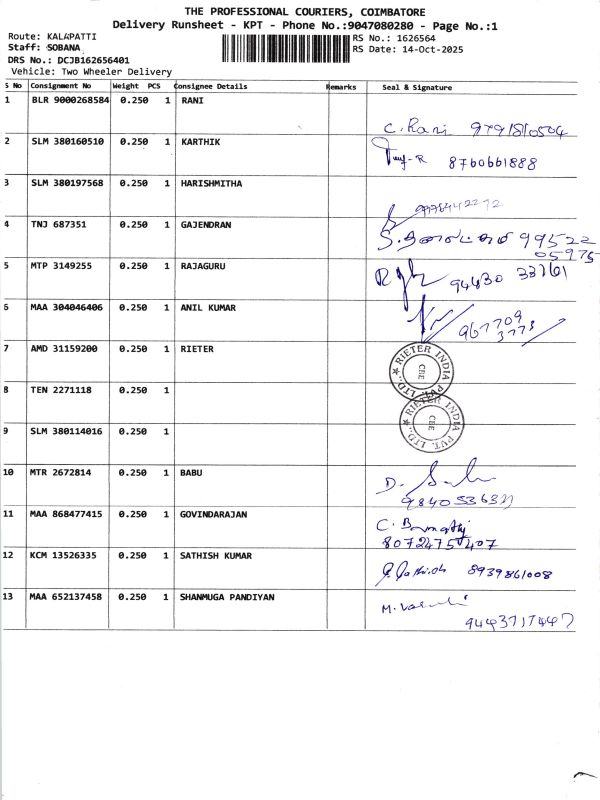 THE PROFESSIONAL COURIERS, COIMBATORE
Delivery Runsheet - KPT - Phone No.:9047080280 - Page No.:1
Route: KALAPATTI
Staff: SOBANA
DRS No.: DCJB162656401
Vehicle: Two Wheeler Delivery
RS No.: 1626564
RS Date: 14-Oct-2025
S No Consignment No Weight PCS Consignee Details Remarks Seal & Signature
1 BLR 9000268584 0.250 1 RANI
C. Rani 9791810504
2 SLM 380160510 0.250 1 KARTHIK
8760661888
3 SLM 380197568 0.250 1 HARISHMITHA
4 TNJ 687351 0.250 1 GAJENDRAN
99522
05975
5 MTP 3149255 0.250 1 RAJAGURU
94430 33761
6 MAA 304046406 0.250 1 ANIL KUMAR
967709
3773
7 AMD 31159200 0.250 1 RIETER
RIETER INDIA PVT. LTD.,
CBE
8 TEN 2271118 0.250 1
RIETER INDIA PVT. LTD.,
CBE
9 SLM 380114016 0.250 1
10 MTR 2672814 0.250 1 BABU
D.
11 MAA 868477415 0.250 1 GOVINDARAJAN
C.
8072475407
12 KCM 13526335 0.250 1 SATHISH KUMAR
8939861008
13 MAA 652137458 0.250 1 SHANMUGA PANDIYAN
9443717447